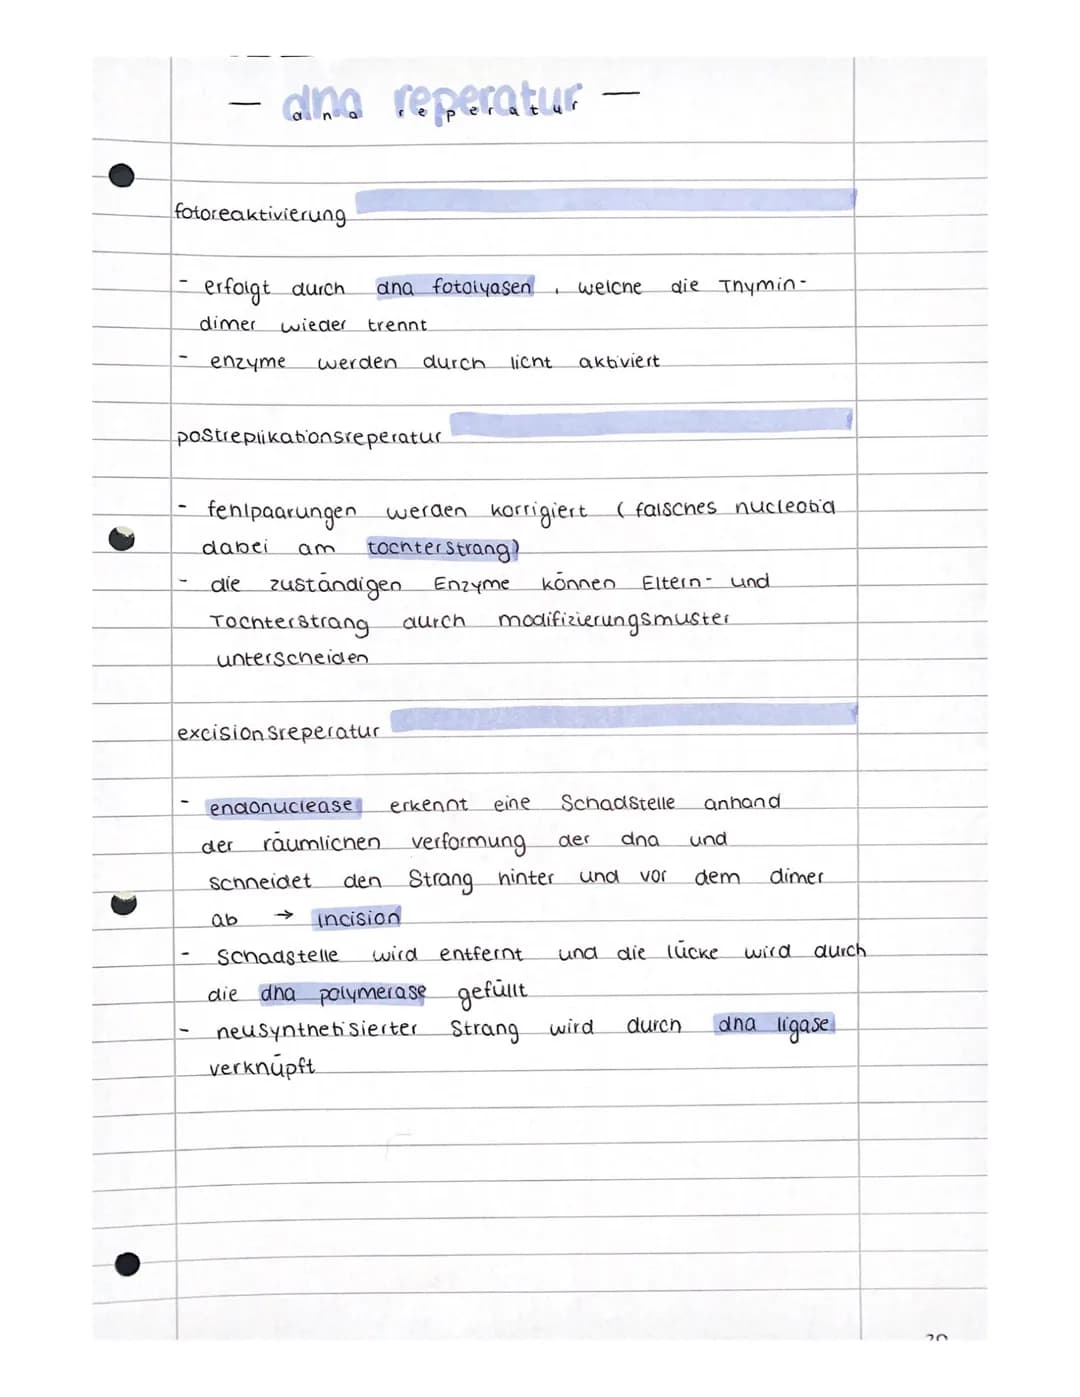 — dna reperatur —
dna reperatur
fotoreaktivierung
- erfolgt durch dna fotolyasen, welche die Thymin-
dimer wieder trennt
- enzyme werden durch licht aktiviert
postreplikationsreperatur
- fehlpaarungen werden korrigiert (falsches nucleotid
dabei am tochterstrang)
- die zuständigen Enzyme können Eltern- und
Tochterstrang durch modifizierungsmuster
unterscheiden
excisionsreperatur
- endonuclease erkennt eine Schadstelle anhand
der räumlichen verformung der dna und
schneidet den Strang hinter und vor dem dimer
ab → incision
- Schadstelle wird entfernt und die lücke wird durch
die dna polymerase gefüllt
- neusynthetisierter Strang wird durch dna ligase
verknüpft